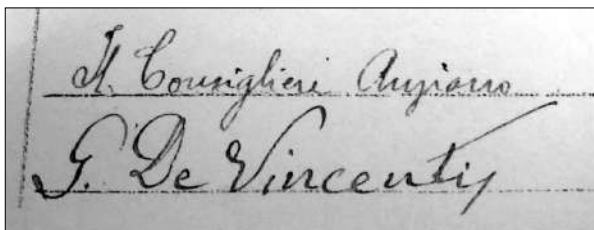 Il Consigliere Anziano
G. De Vincentij